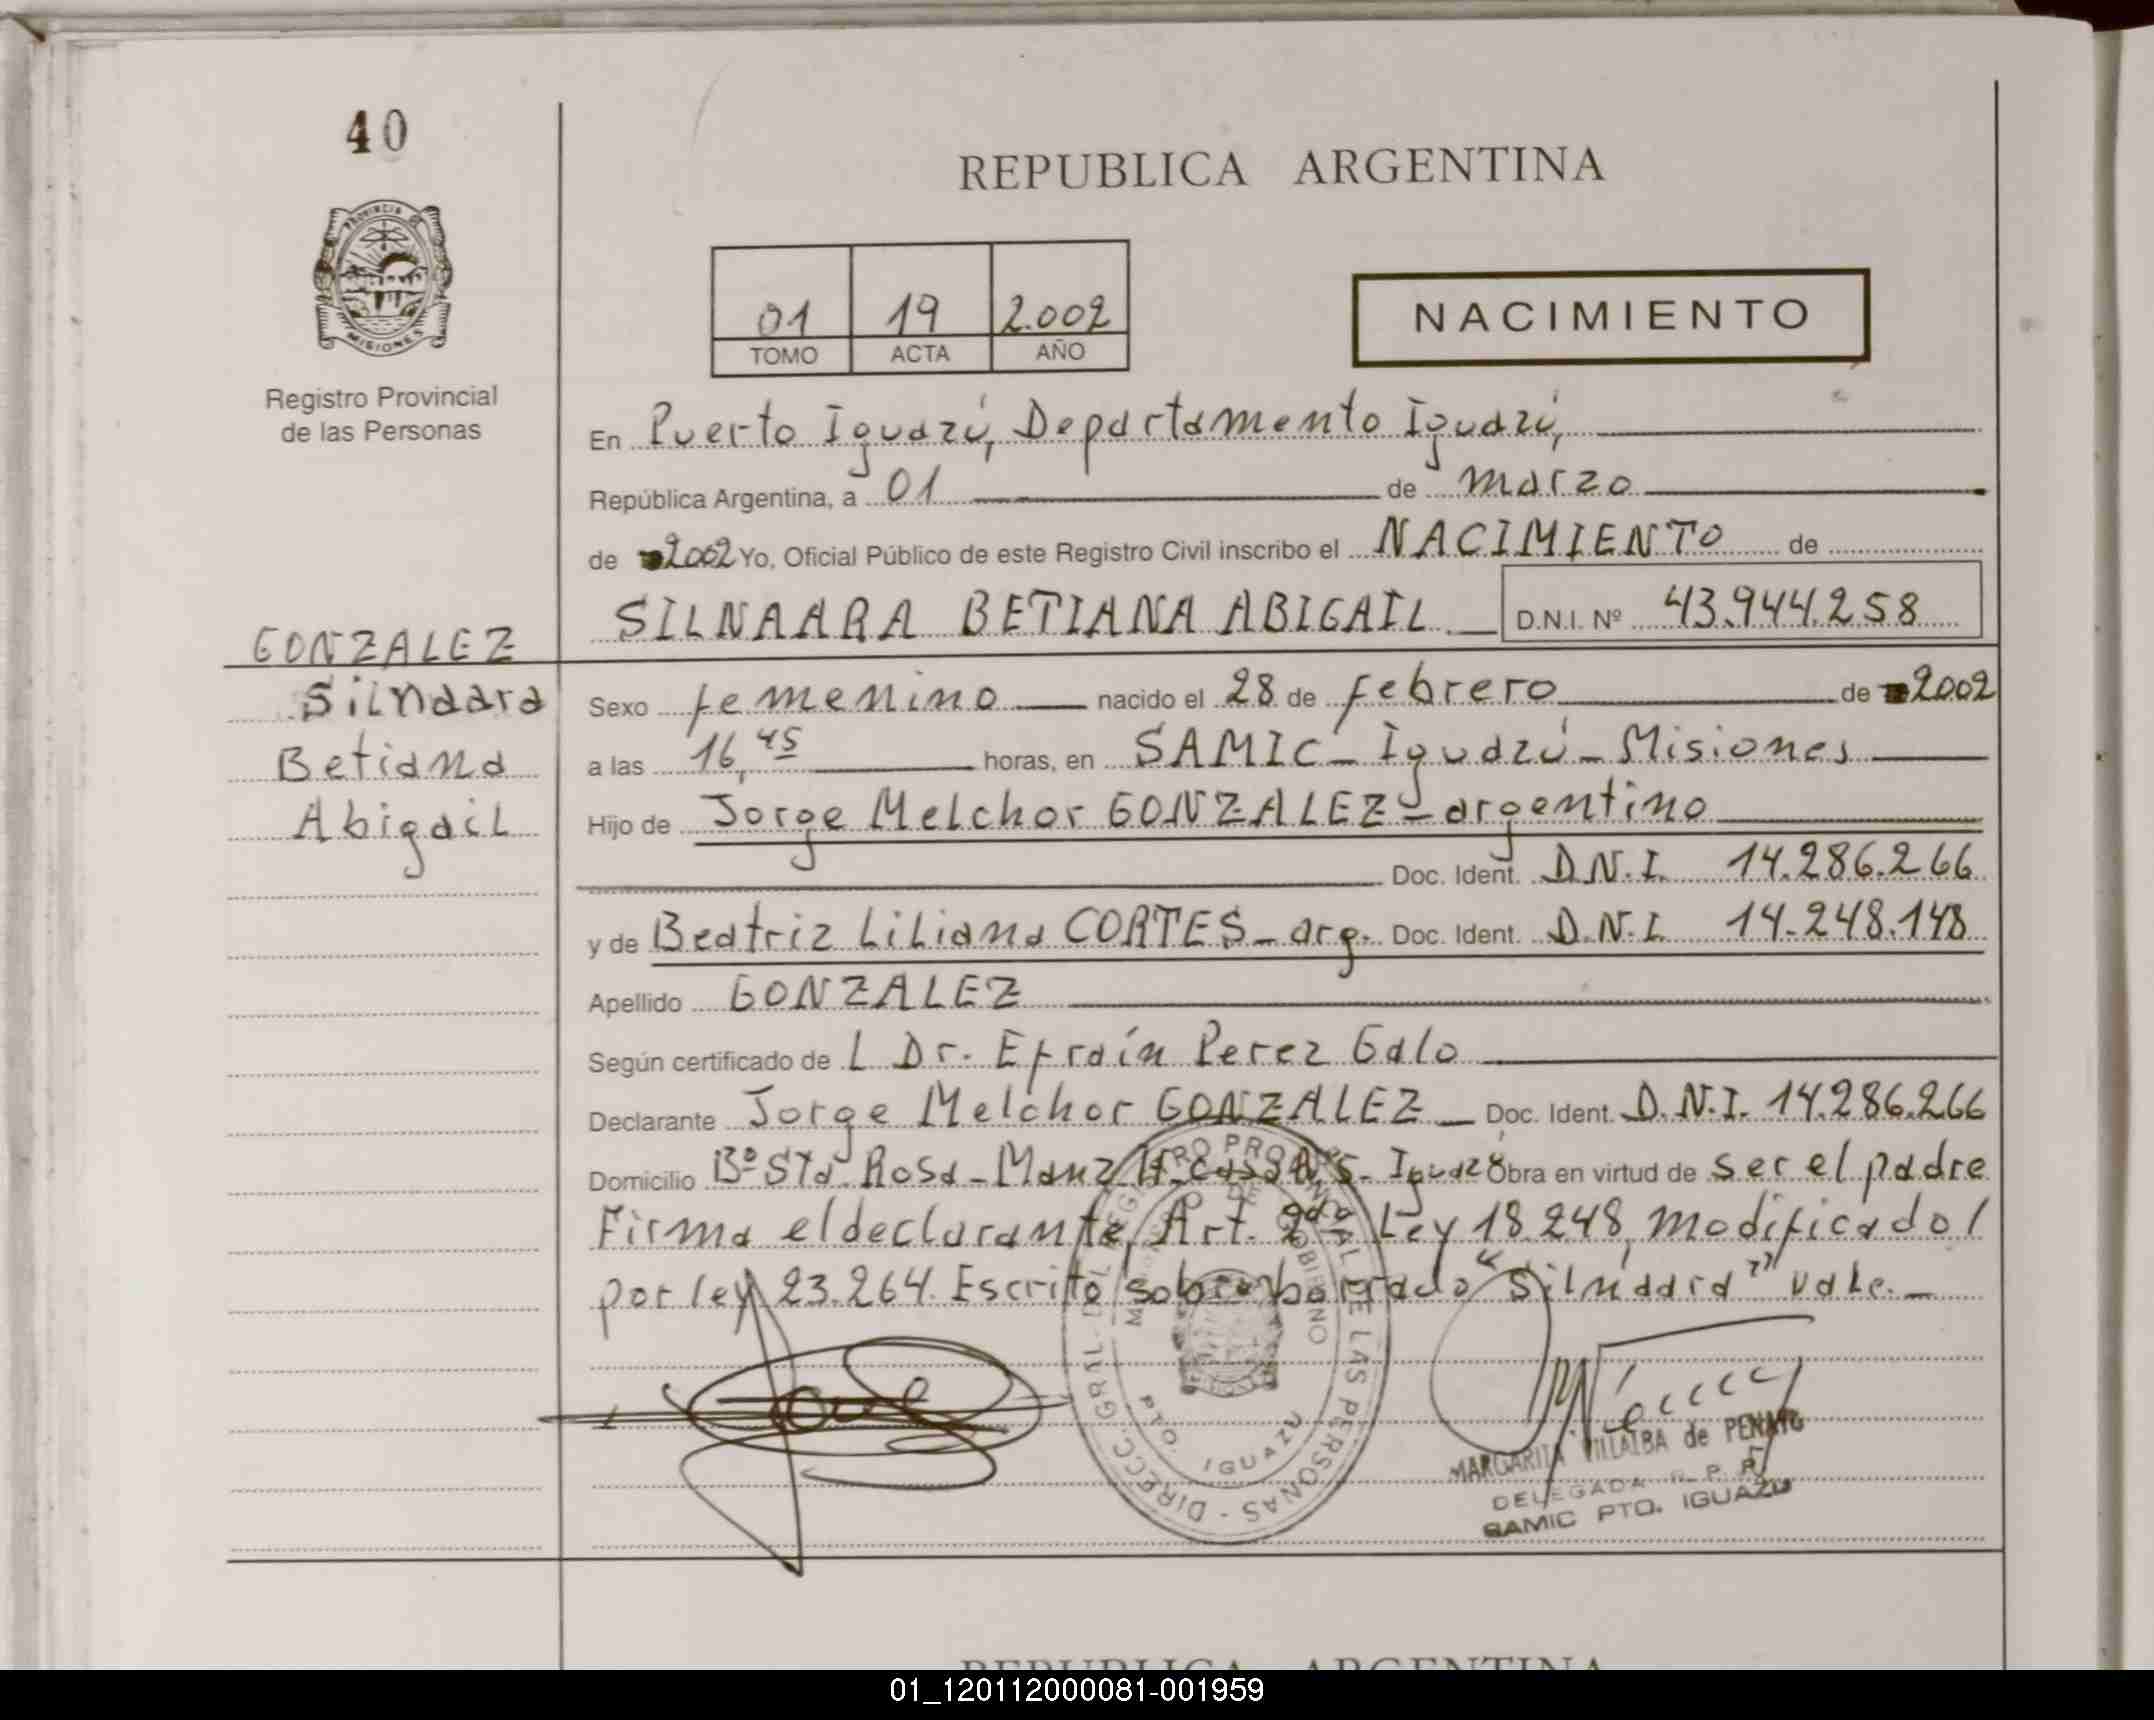 40
REPUBLICA ARGENTINA
PROVINCIA
MISIONES
Registro Provincial
de las Personas
01 19 2.002
TOMO ACTA AÑO
NACIMIENTO
En Puerto Iguazú, Departamento Iguazú,
República Argentina, a 01 de marzo
de 2002 Yo, Oficial Público de este Registro Civil inscribo el NACIMIENTO de
SILNAARA BETIANA ABIGAIL D.N.I. Nº 43.944.258
GONZALEZ
Silnaara
Betiana
Abigail
Sexo femenino nacido el 28 de febrero de 2002
a las 16,45 horas, en SAMIC - Iguazú - Misiones
Hijo de Jorge Melchor GONZALEZ - argentino
Doc. Ident. D.N.I. 14.286.266
y de Beatriz Liliana CORTES - arg. Doc. Ident. D.N.I. 14.248.148
Apellido GONZALEZ
Según certificado de L Dr. Efraín Perez Galo
Declarante Jorge Melchor GONZALEZ Doc. Ident. D.N.I. 14.286.266
Domicilio Bº Sta Rosa - Manz Iguazú Obra en virtud de ser el padre
Firma el declarante, Art. 2do Ley 18.248, modificado
por ley 23.264. Escrito sobre borrado "Silnaara" vale.
DIRECC. GRAL. DEL REGISTRO PROVINCIAL DE LAS PERSONAS
DE GOBIERNO
PTO. IGUAZU
MARGARITA VILLALBA de PENAYO
DELEGADA R. P. P.
SAMIC PTO. IGUAZU
REPUBLICA ARGENTINA
01_120112000081-001959